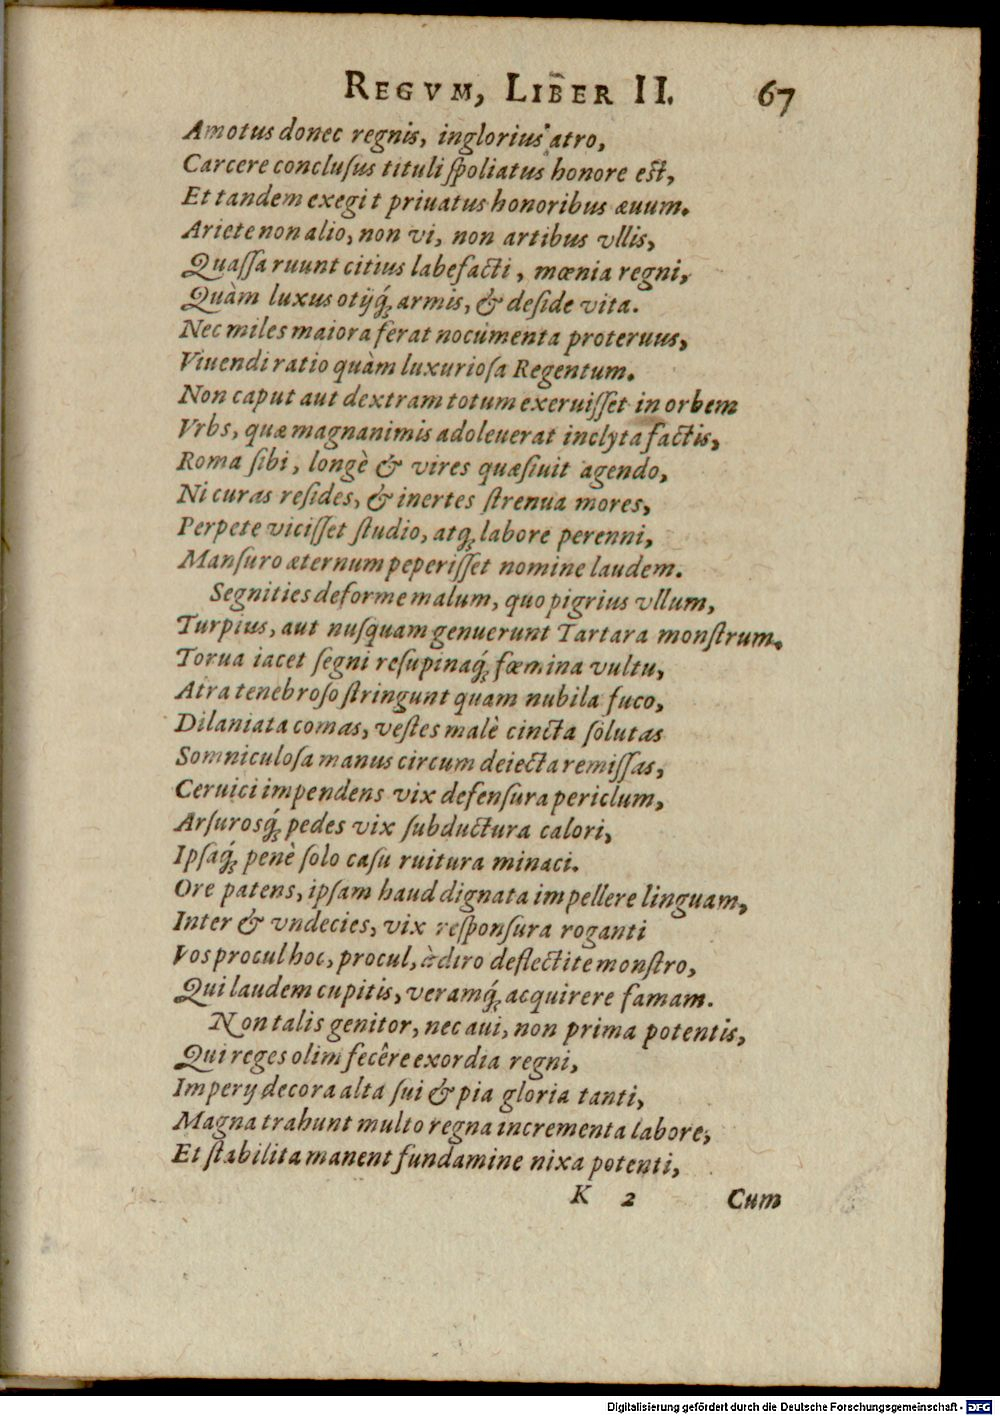 REGVM, LIBER II. 67
Amotus donec regnis, inglorius atro,
Carcere conclusus tituli spoliatus honore est,
Et tandem exegit priuatus honoribus æuum.
Ariete non alio, non vi, non artibus vllis,
Quassa ruunt citius labefacti, mœnia regni,
Quàm luxus otijq́; armis, & deside vita.
Nec miles maiora ferat nocumenta proteruus,
Viuendi ratio quàm luxuriosa Regentum.
Non caput aut dextram totum exeruisset in orbem
Vrbs, quæ magnanimis adoleuerat inclyta factis,
Roma sibi, longè & vires quæsiuit agendo,
Ni curas resides, & inertes strenua mores,
Perpete vicisset studio, atq; labore perenni,
Mansuro æternum peperisset nomine laudem.
Segnities deforme malum, quo pigrius vllum,
Turpius, aut nusquam genuerunt Tartara monstrum.
Torua iacet segni resupinaq́; fœmina vultu,
Atra tenebroso stringunt quam nubila fuco,
Dilaniata comas, vestes malè cincta solutas
Somniculosa manus circum deiecta remissas,
Ceruici impendens vix defensura periclum,
Arsurosq́; pedes vix subductura calori,
Ipsaq́; penè solo casu ruitura minaci.
Ore patens, ipsam haud dignata impellere linguam,
Inter & vndecies, vix responsura roganti
Vos procul hoc, procul, à diro deflectite monstro,
Qui laudem cupitis, veramq́; acquirere famam.
Non talis genitor, nec aui, non prima potentis,
Qui reges olim fecêre exordia regni,
Imperij decora alta sui & pia gloria tanti,
Magna trahunt multo regna incrementa labore,
Et stabilita manent fundamine nixa potenti,
K 2 Cum
Digitalisierung gefördert durch die Deutsche Forschungsgemeinschaft - DFG